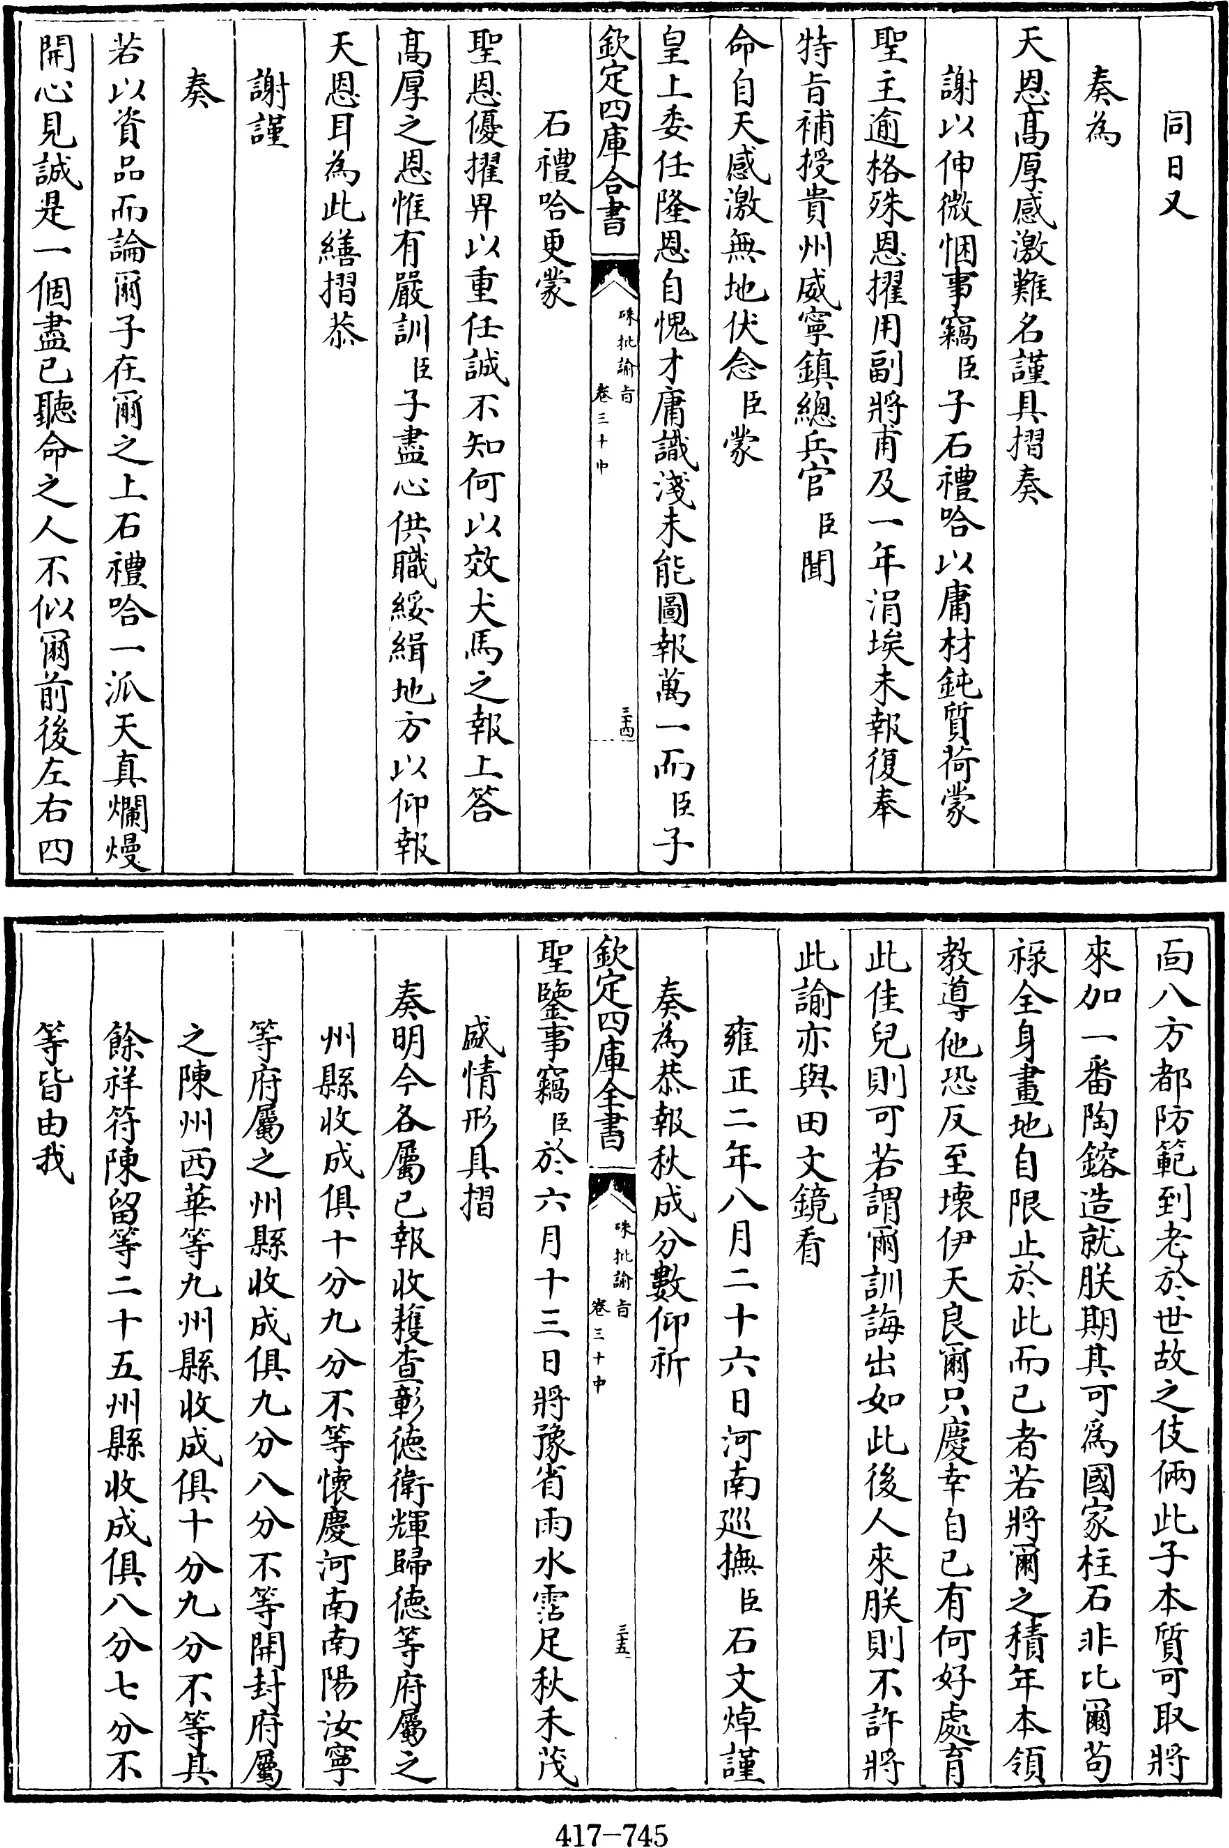 同日又
奏為
天恩髙厚感激難名謹具摺奏
謝以伸微悃事竊臣子石禮哈以庸材鈍質荷蒙
聖主逾格殊恩擢用副將甫及一年涓埃未報復奉
特旨補授貴州威寧鎮總兵官臣聞
命自天感激無地伏念臣蒙
皇上委任隆恩自愧才庸識淺未能圖報萬一而臣子
欽定四庫全書
硃批諭旨
卷三十中
三十四
石禮哈更蒙
聖恩優擢畀以重任誠不知何以效犬馬之報上答
髙厚之恩惟有嚴訓臣子盡心供職綏緝地方以仰報
天恩耳為此繕摺恭
謝謹
奏
若以資品而論爾子在爾之上石禮哈一派天真爛熳
開心見誠是一個盡已聽命之人不似爾前後左右四
面八方都防範到老於世故之伎倆此子本質可取將
來加一番陶鎔造就朕期其可為國家柱石非比爾苟
祿全身畫地自限止於此而已者若將爾之積年本領
教導他恐反至壞伊天良爾只慶幸自已有何好處育
此佳兒則可若謂爾訓誨出如此後人來朕則不許將
此諭亦與田文鏡看
雍正二年八月二十六日河南巡撫臣石文焯謹
奏為恭報秋成分數仰祈
欽定四庫全書
硃批諭旨
卷三十中
三十五
聖鑒事竊臣於六月十三日將豫省雨水霑足秋禾茂
盛情形具摺
奏明今各屬已報收穫查彰德衛輝歸德等府屬之
州縣收成俱十分九分不等懷慶河南南陽汝寧
等府屬之州縣收成俱九分八分不等開封府屬
之陳州西華等九州縣收成俱十分九分不等其
餘祥符陳留等二十五州縣收成俱八分七分不
等皆由我
417-745